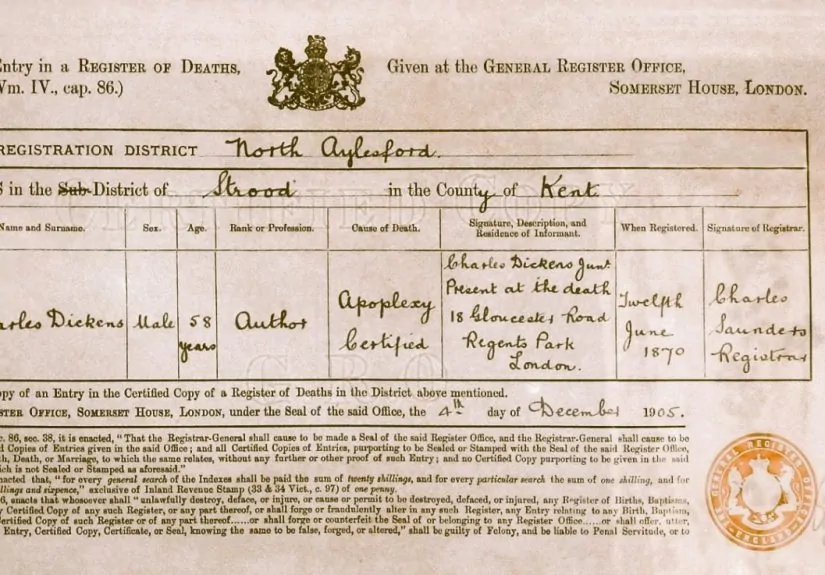 Entry in a REGISTER OF DEATHS,
Given at the GENERAL REGISTER OFFICE,
Wm. IV., cap. 86.)
SOMERSET HOUSE, LONDON.
REGISTRATION DISTRICT North Aylesford.
S in the Sub-District of Strood in the County of Kent
CERTIFIED COPY
Name and Surname. Sex. Age. Rank or Profession. Cause of Death. Signature, Description, and Residence of Informant. When Registered. Signature of Registrar.
arles Dickens
Male
58
years
Author
Apoplexy
Certified
Charles Dickens Junr
Present at the death
18 Gloucester Road
Regents Park
London.
Twelfth
June
1870
Charles
Saunders
Registrar
G R O
opy of an Entry in the Certified Copy of a Register of Deaths in the District above mentioned.
STER OFFICE, SOMERSET HOUSE, LONDON, under the Seal of the said Office, the 4th day of December 1905.
c. 86, sec. 38, it is enacted, "That the Registrar-General shall cause to be made a Seal of the said Register Office, and the Registrar-General shall cause to be
d Copies of Entries given in the said Office; and all Certified Copies of Entries, purporting to be Sealed or Stamped with the Seal of the said Register Office,
th, Death, or Marriage, to which the same relates, without any further or other proof of such Entry; and no Certified Copy purporting to be given in the said
ich is not Sealed or Stamped as aforesaid."
nacted that, "for every general search of the Indexes shall be paid the sum of twenty shillings, and for every particular search the sum of one shilling, and for
llings and sixpence," exclusive of Inland Revenue Stamp (33 & 34 Vict., c. 97) of one penny.
6, enacts that whosoever shall "unlawfully destroy, deface, or injure, or cause or permit to be destroyed, defaced, or injured, any Register of Births, Baptisms,
y Certified Copy of any such Register, or any part thereof, or shall forge or fraudulently alter in any such Register, any Entry relating to any Birth, Baptism,
ertified Copy of such Register or of any part thereof......or shall forge or counterfeit the Seal of or belonging to any Register Office......or shall offer, utter,
Entry, Certified Copy, Certificate, or Seal, knowing the same to be false, forged, or altered," shall be guilty of Felony, and be liable to Penal Servitude, or to
GENERAL REGISTER OFFICE
ENGLAND